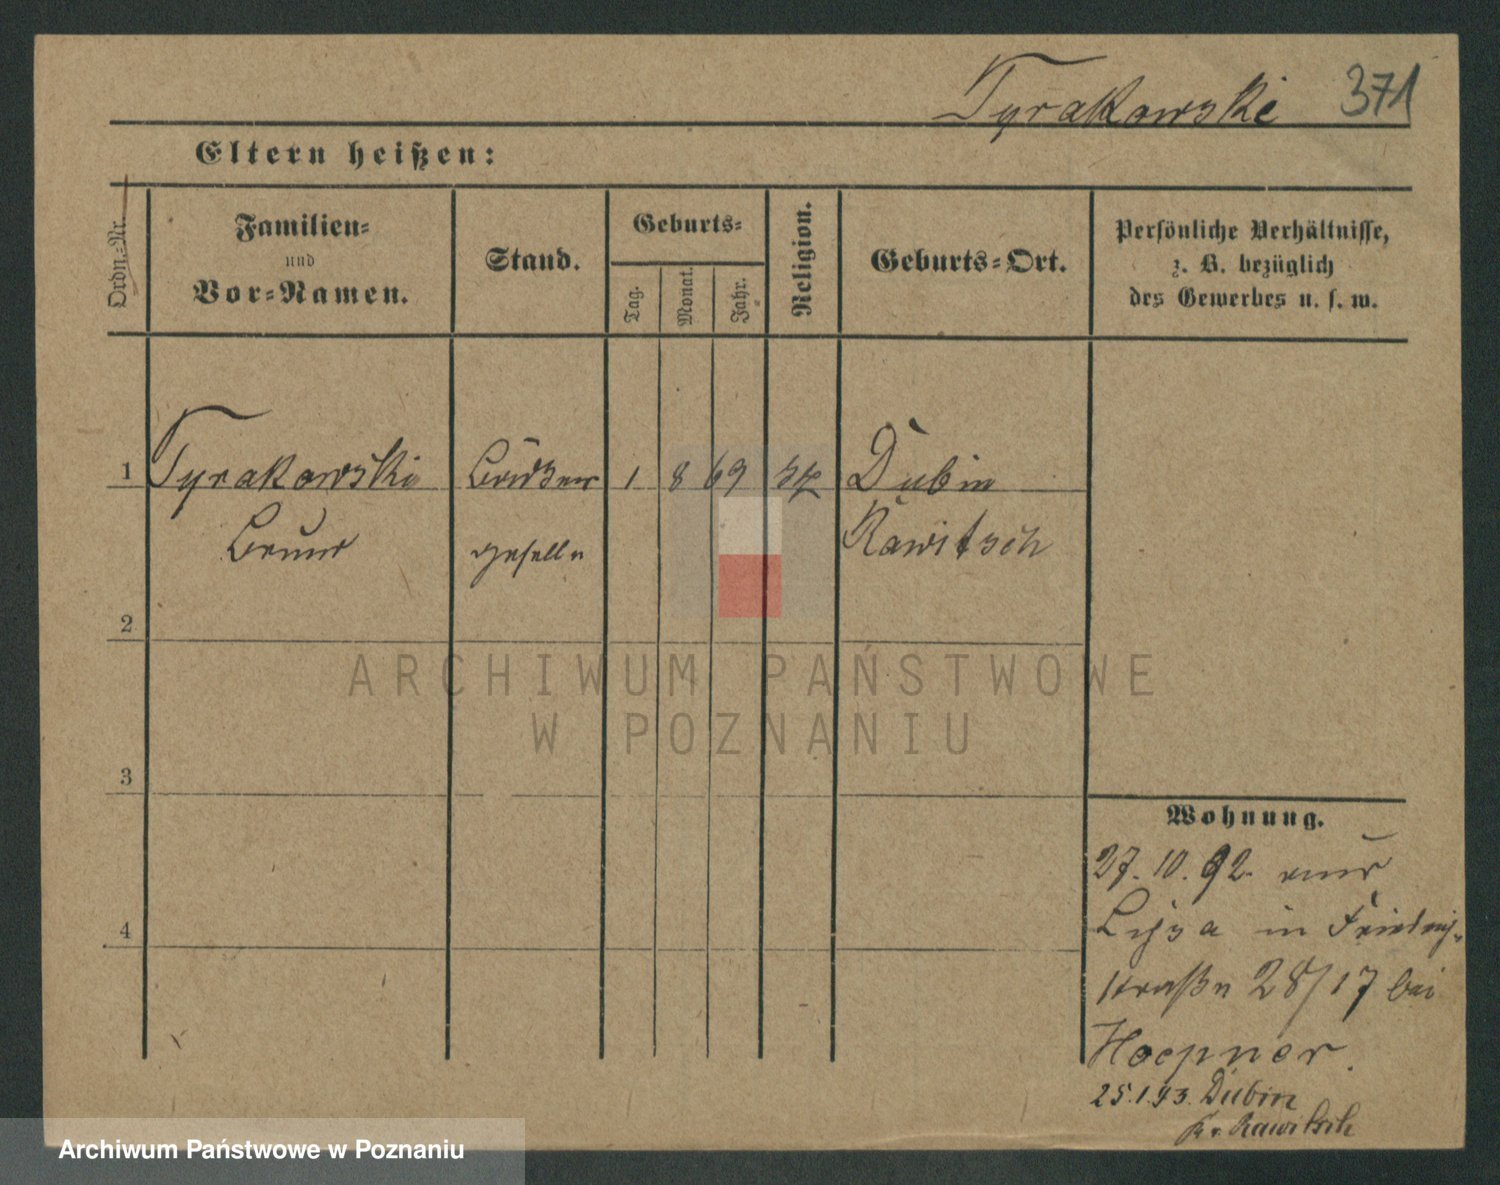 Tyrakowski 371
Eltern heißen:
Ordn.-Nr.
Familien-
und
Vor-Namen.
Stand.
Geburts-
Tag.
Monat.
Jahr.
Religion.
Geburts-Ort.
Persönliche Verhältnisse,
z. B. bezüglich
des Gewerbes u. s. w.
1 Tyrakowski 1 8 69 Dubin
Bruno geselle Rawitsch
2
3
4
Wohnung.
27. 10. 92. aus
Lissa in Friedrich-
straße 28/17 bei
Hoepner.
25.1.93. Dubin
Kr. Rawitsch
ARCHIWUM PAŃSTWOWE
W POZNANIU
Archiwum Państwowe w Poznaniu